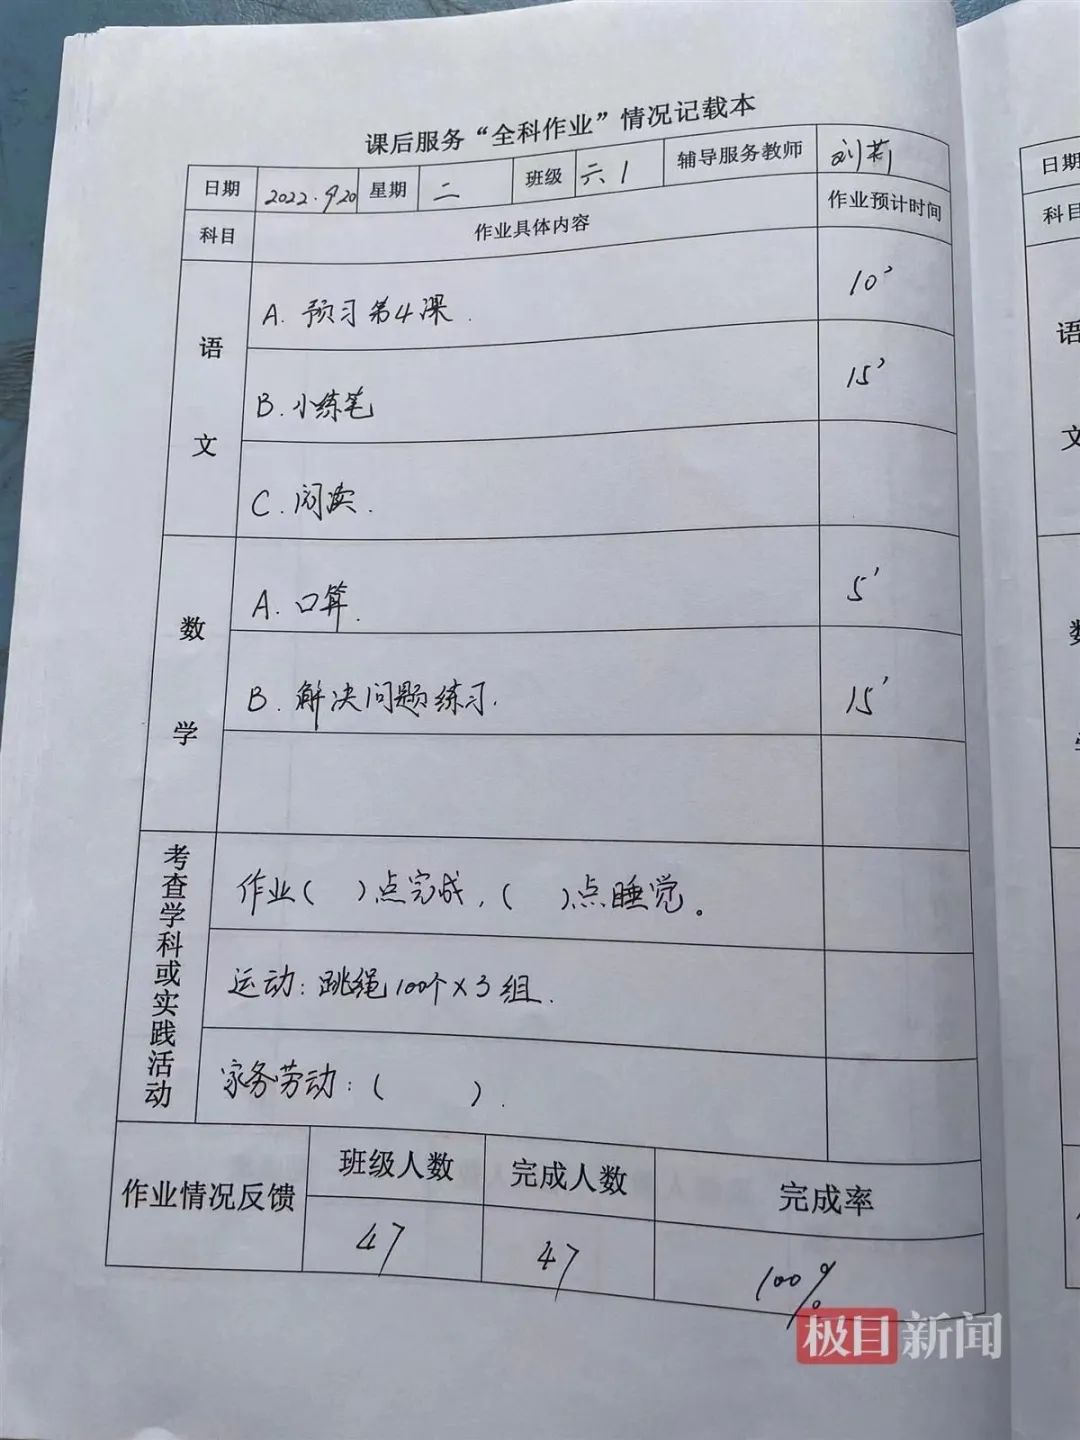 课后服务“全科作业”情况记载本
日期 2022.9.20 星期 二 班级 六.1 辅导服务教师 刘莉
科目 作业具体内容 作业预计时间
语文
A. 预习第4课. 10'
B. 小练笔 15'
C. 阅读.
数学
A. 口算. 5'
B. 解决问题练习. 15'
考查学科或实践活动
作业( )点完成,( )点睡觉。
运动:跳绳100个×3组.
家务劳动:( ).
作业情况反馈 班级人数 完成人数 完成率
47 47 100%
极目新闻
日期
科目
语
文
数
学